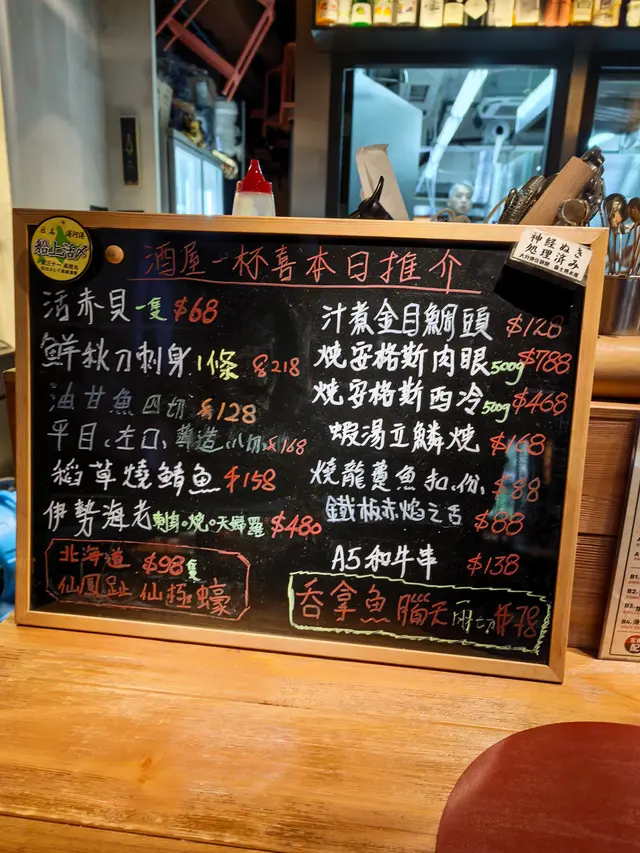 船上活〆
神経ぬき
処理済み
酒屋一杯喜本日推介
活赤貝一隻 $68
鮮秋刀刺身1條 $218
油甘魚四切 $128
平目、左口、薄造、八切 $168
稻草燒鯖魚 $158
伊勢海老刺身。燒。天婦羅 $480
北海道 $98隻
仙鳳趾 仙極蠔
汁煮金目鯛頭 $128
燒安格斯肉眼500g $788
燒安格斯西冷500g $468
蝦湯立鱗燒 $168
燒龍躉魚扣、份、$88
鐵板赤焰之舌 $88
A5和牛串 $138
吞拿魚腦天 二切 $78